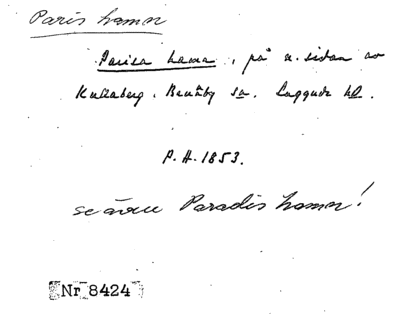 Paris hamn
Parisa hamn, på n. sidan av
Kullaberg. Brunnby sn. Luggude hd.
P. A. 1853.
se även Paradis hamn!
Nr 8424